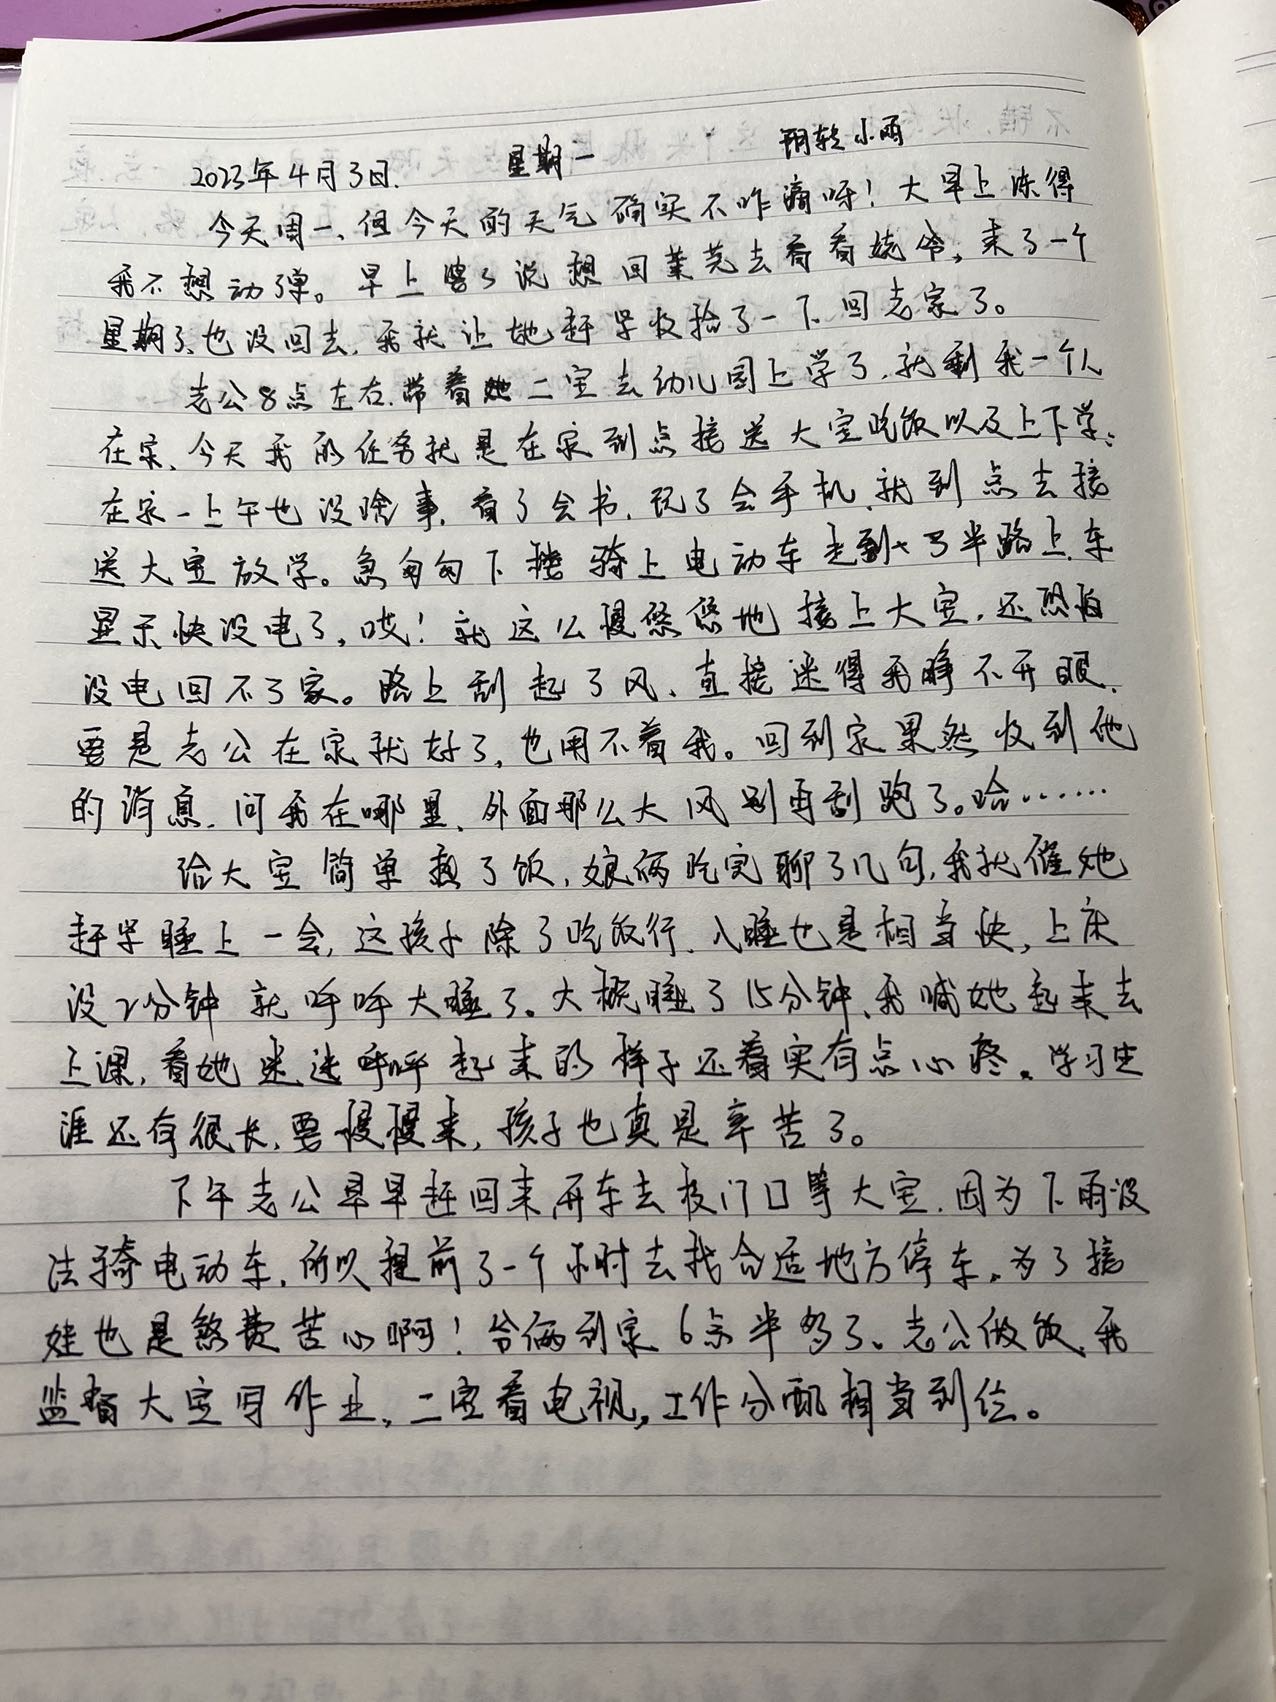 2023年4月3日. 星期一 阴转小雨
今天周一、但今天的天气确实不咋滴呀！大早上冻得
我不想动弹。早上婆婆说想回莱芜去看看姥爷，来了一个
星期了、也没回去，我就让她赶紧收拾了一下回老家了。
老公8点左右、带着她二宝去幼儿园上学了，就剩我一个人
在家、今天我的任务就是在家到点接送大宝吃饭以及上下学；
在家一上午也没啥事，看了会书，玩了会手机，就到点去接
送大宝放学。急匆匆下楼骑上电动车走到大半路上，车
显示快没电了，哎！就这么慢悠悠地接上大宝，还恐怕
没电回不了家。路上刮起了风、直接迷得我睁不开眼，
要是老公在家就好了，也用不着我。回到家果然收到他
的消息，问我在哪里、外面那么大风别再刮跑了。哈……
给大宝简单热了饭，娘俩吃完聊了几句，我就催她
赶紧睡上一会，这孩子除了吃饭行、入睡也是相当快，上床
没2分钟就呼呼大睡了。大概睡了15分钟、我喊她起来去
上课，看她迷迷呼呼起来的样子还着实有点心疼。学习生
涯还有很长，要慢慢来，孩子也真是辛苦了。
下午老公早早赶回来开车去校门口等大宝，因为下雨没
法骑电动车，所以提前了一个小时去找合适地方停车。为了接
娃也是煞费苦心啊！爷俩到家6点半多了。老公做饭，我
监督大宝写作业，二宝看电视，工作分配相当到位。